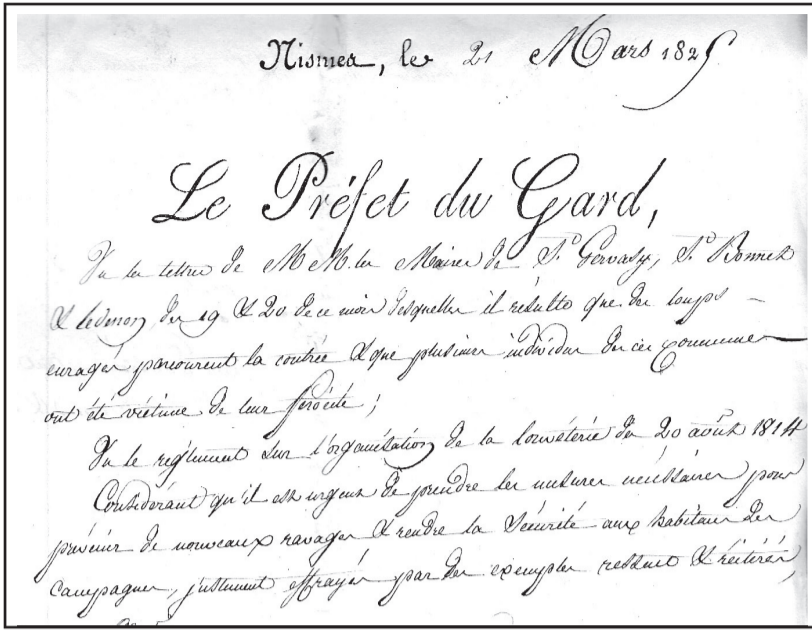 Nismes, le 21 Mars 1825
Le Préfet du Gard,
Vu la lettre de M M. les Maires de St Gervasy, St Bonnet
& Ledenon des 19 & 20 de ce mois desquelles il résulte que des loups
enragés parcourent la contrée & que plusieurs individus de ces communes
ont été victime de leur férocité ;
Vu le réglement sur l'organisation de la louvèterie du 20 août 1814
Considérant qu'il est urgent de prendre les mesures nécéssaires pour
prévenir de nouveaux ravages & rendre la sécurité aux habitans des
campagnes, justement effrayés par des exemples & réitérés,